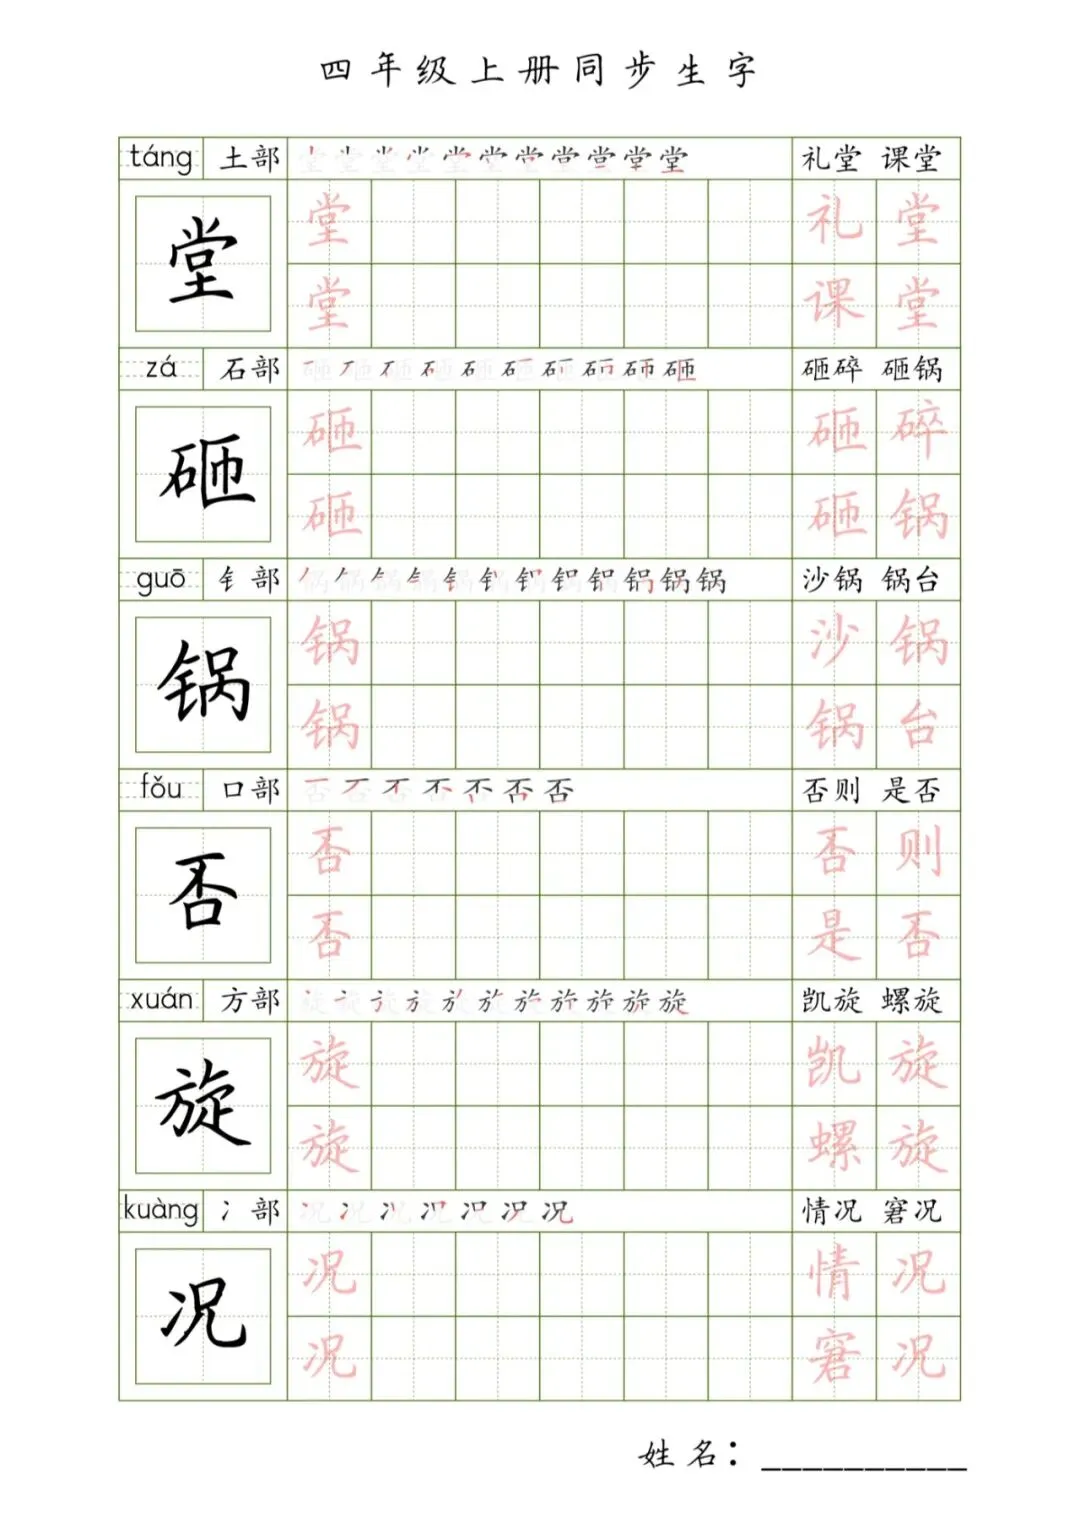 四年级上册同步生字
táng 土部 堂堂堂堂堂堂堂堂堂堂堂 礼堂 课堂
堂 堂 礼堂
堂 课堂
zá 石部 砸砸砸砸砸砸砸砸砸砸 砸碎 砸锅
砸 砸 砸碎
砸 砸锅
guō 钅部 锅锅锅锅锅锅锅锅锅锅锅锅 沙锅 锅台
锅 锅 沙锅
锅 锅台
fǒu 口部 否否否否否否否 否则 是否
否 否 否则
否 是否
xuán 方部 旋旋旋旋旋旋旋旋旋旋旋 凯旋 螺旋
旋 旋 凯旋
旋 螺旋
kuàng 冫部 况况况况况况况 情况 窘况
况 况 情况
况 窘况
姓名：__________